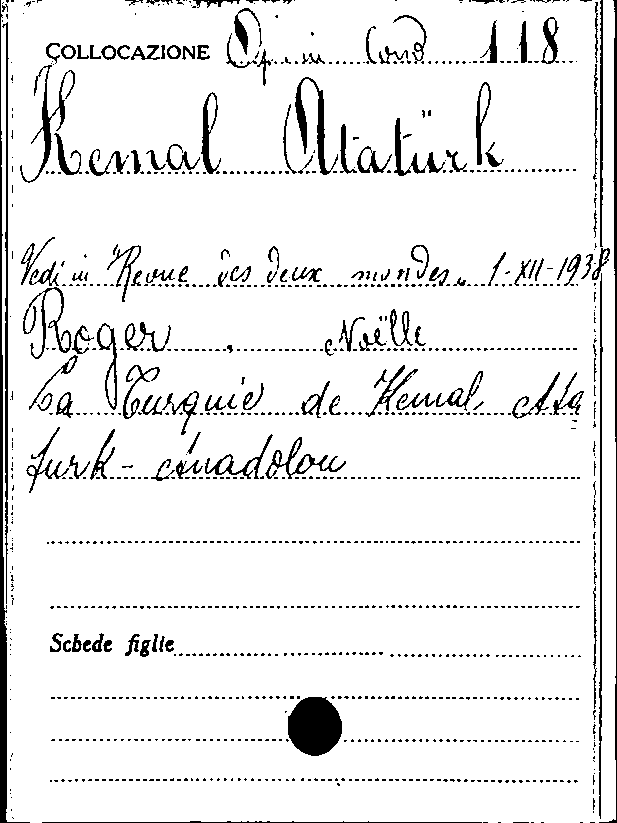 COLLOCAZIONE Op. in Cons 118
Kemal Atatürk
Vedi in "Revue des deux mondes" 1-XII-1938
Roger, Noëlle
La Turquie de Kemal Ata
turk - Anadolou
Schede figlie